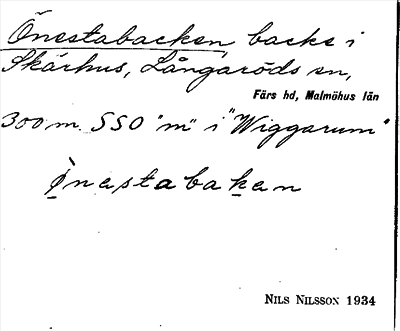 Önestabacken, backe i
Skärhus, Långaröds sn,
Färs hd, Malmöhus län
300 m. SSO "m" i "Wiggarum"
Ònestabaken
NILS NILSSON 1934